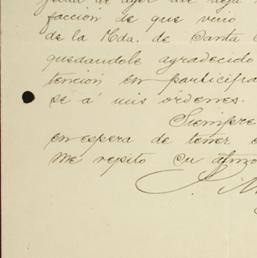 facción de que vino
de la Hda. de Santa
quedandole agradecido
tención en participa
se á mis órdenes.
Siempre
en espera de tener
me repito su